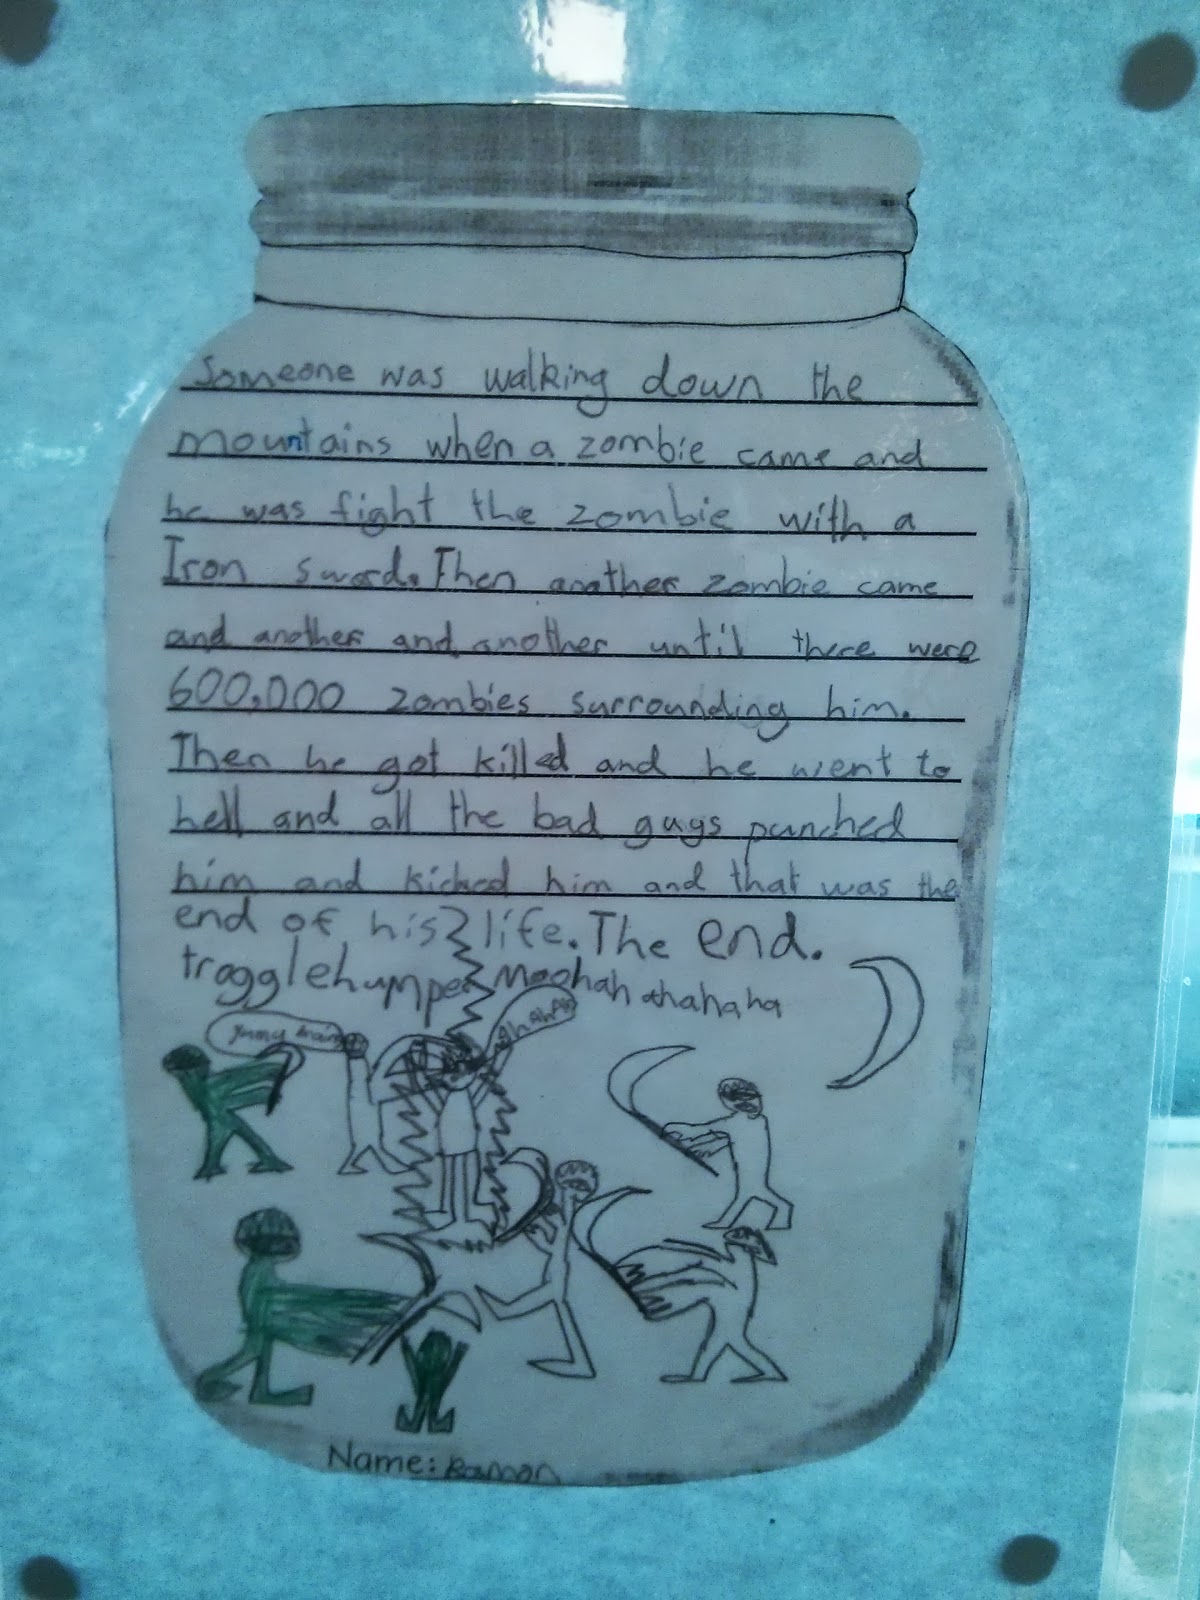 Someone was walking down the
mountains when a zombie came and
he was fight the zombie with a
Iron sword. Then another zombie came
and another and another until there were
600,000 zombies surrounding him.
Then he got killed and he went to
hell and all the bad guys punched
him and kicked him and that was the
end of his life. The end.
trogglehumper Moohah ahahaha
Name: Ramon